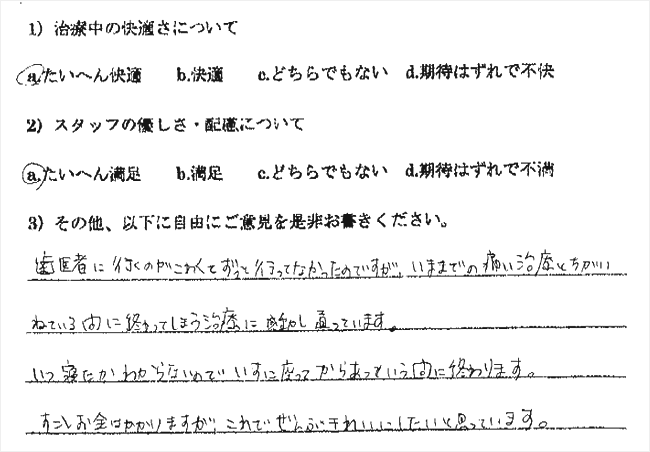 1) 治療中の快適さについて
a.たいへん快適 b.快適 c.どちらでもない d.期待はずれで不快
2) スタッフの優しさ・配慮について
a.たいへん満足 b.満足 c.どちらでもない d.期待はずれで不満
3) その他、以下に自由にご意見を是非お書きください。
歯医者に行くのがこわくてずっと行ってなかったのですが、いままでの痛い治療とちがい
ねている間に終わってしまう治療に感動し通っています。
いつ寝たかわからないので いすに座ってからあっという間に終わります。
すこしお金はかかりますが、これでぜんぶきれいにしたいと思っています。